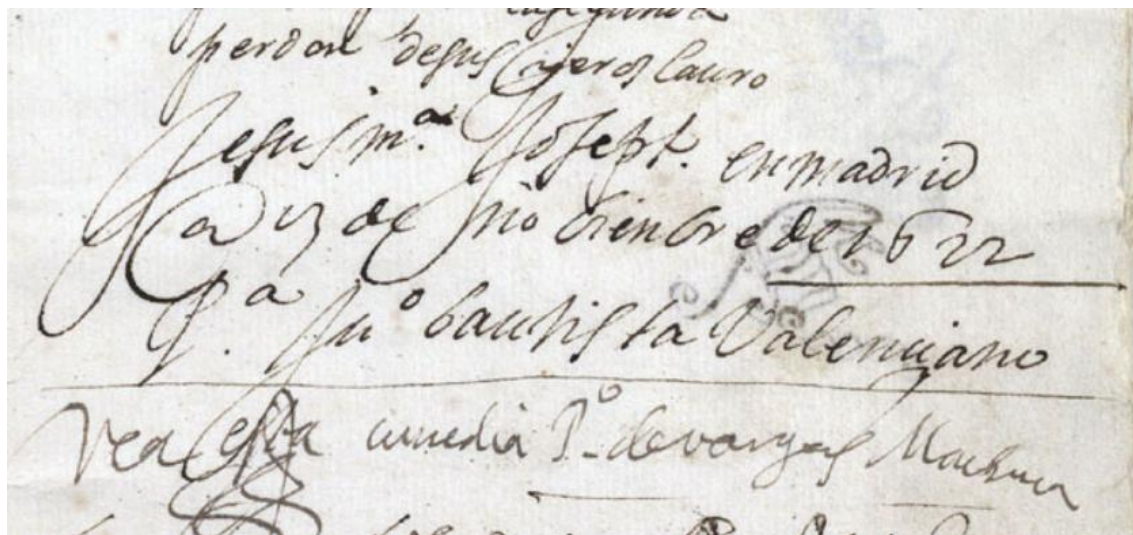 perdon de sus yerros lauro
Jesus m.ª Joseph. en madrid
a 23 de nobienbre de 1622
P.ª Ju.º bautista Valenciano
Vea esta comedia P.º de vargas Machuca